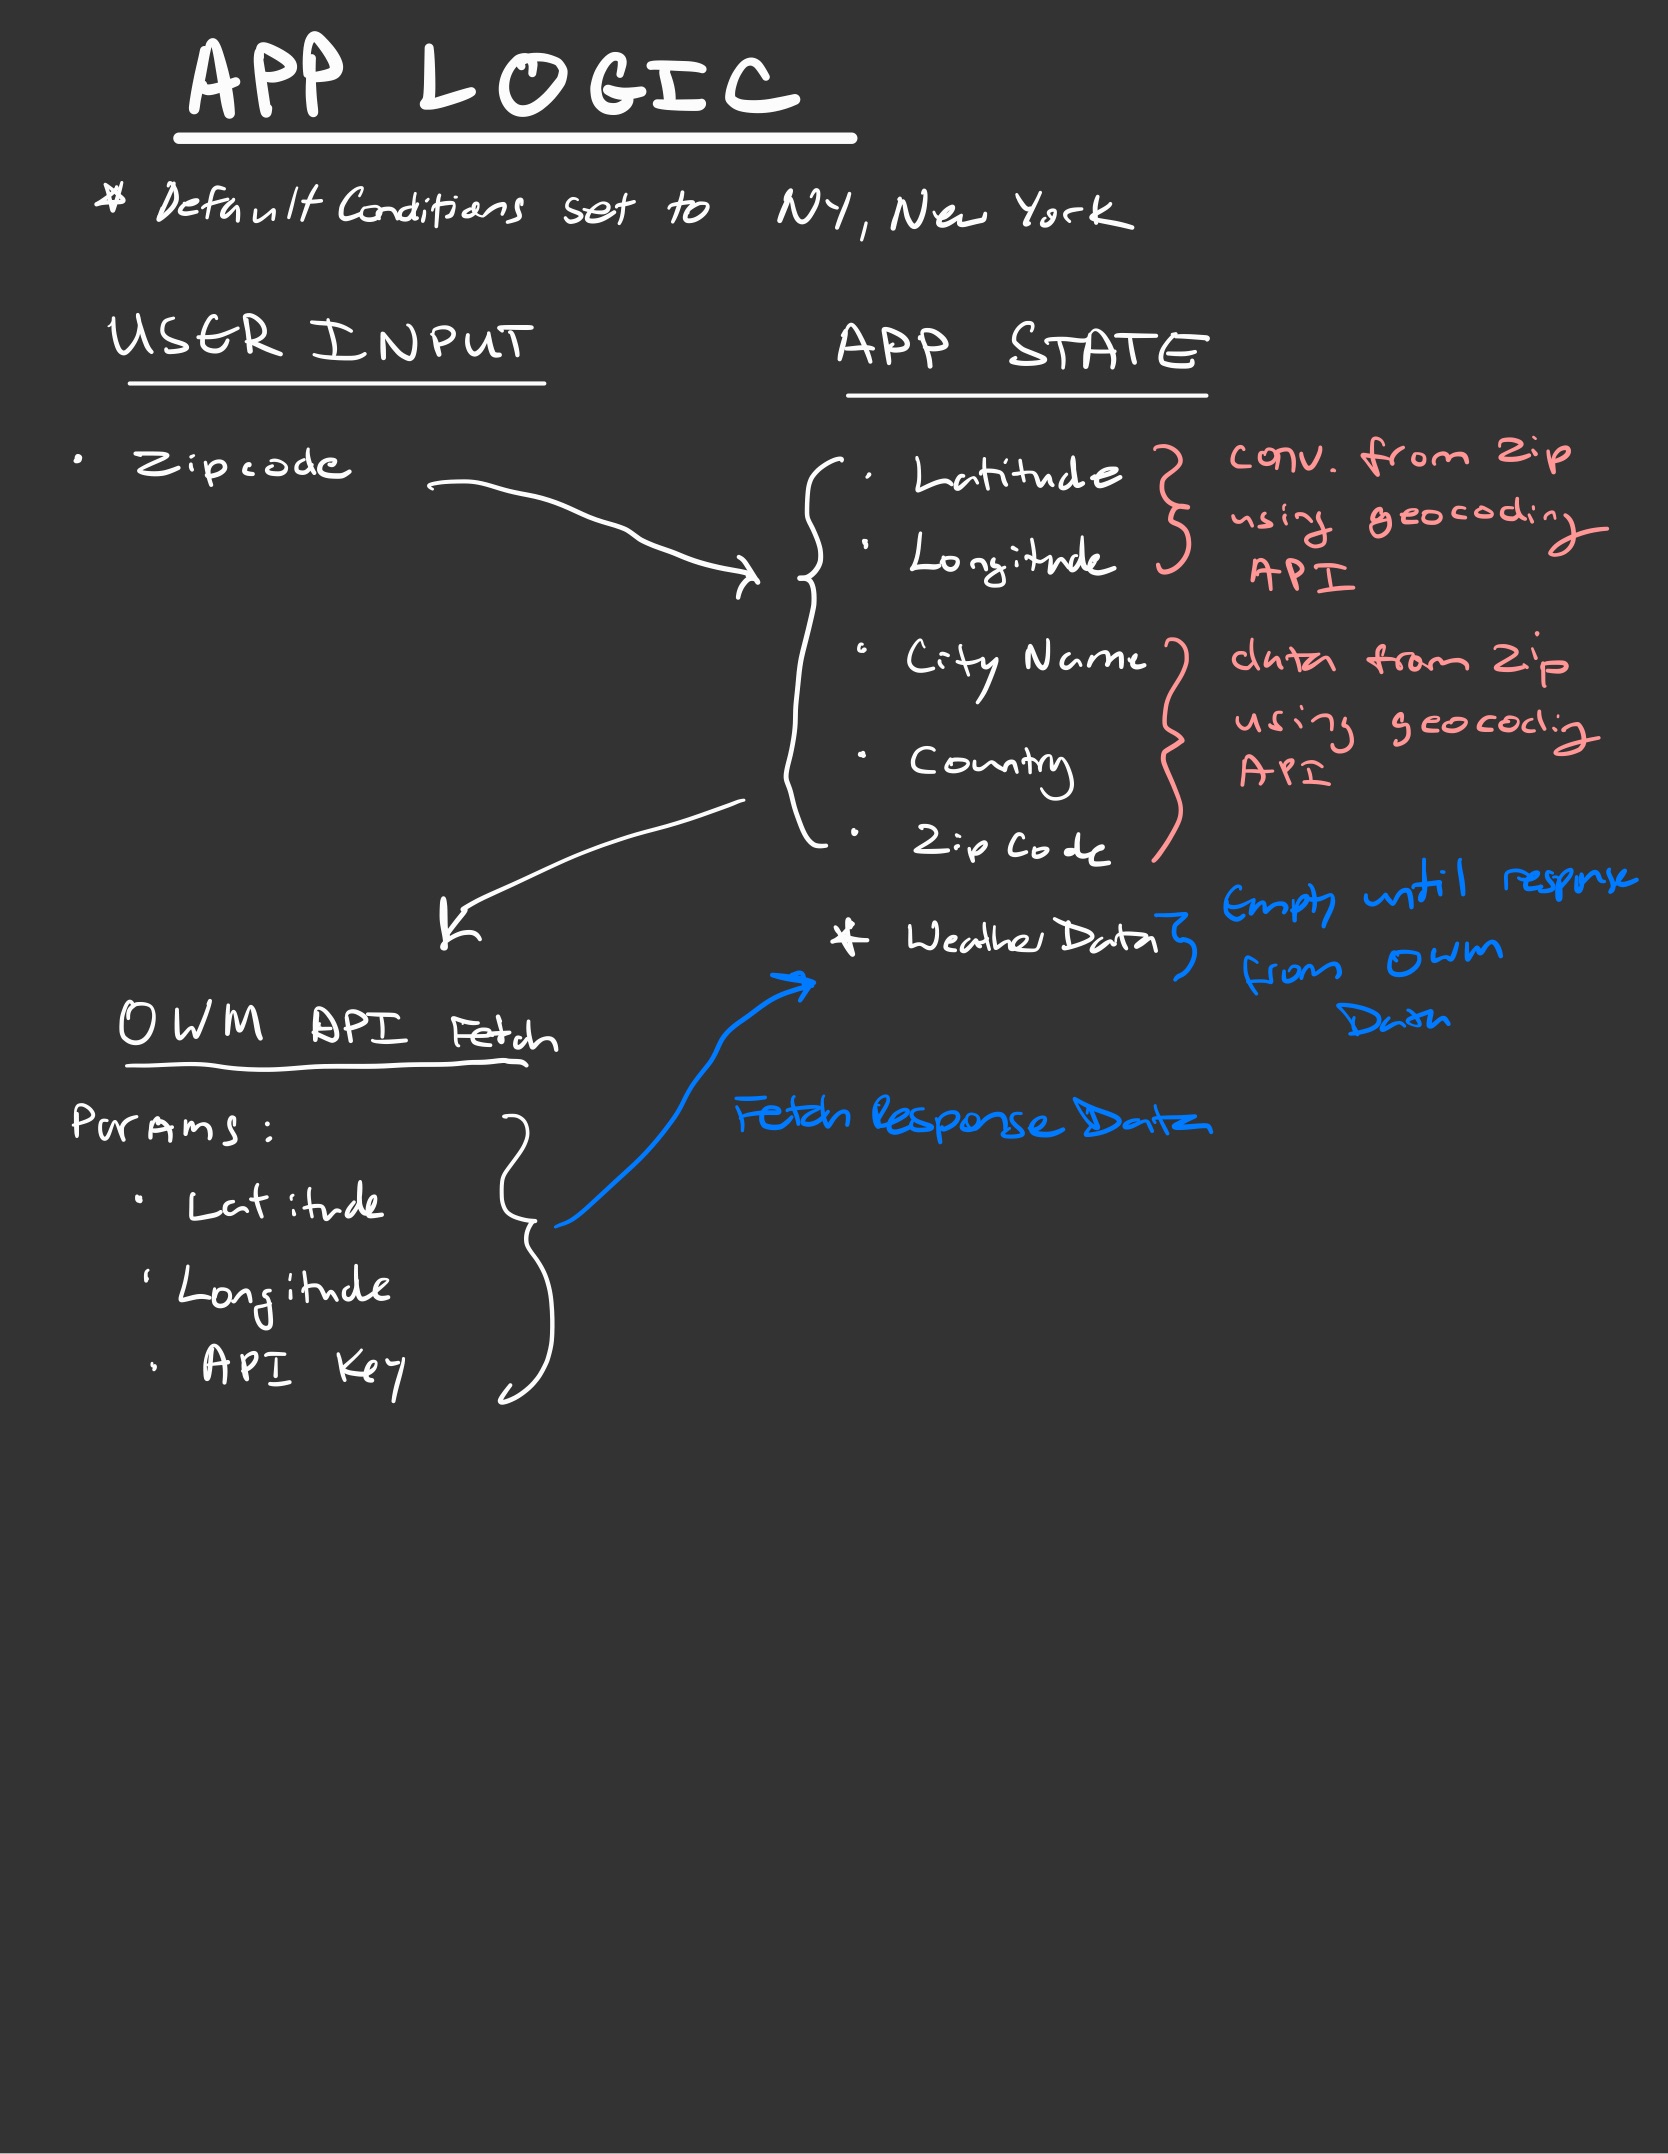 APP LOGIC
* Default Conditions set to NY, New York
USER INPUT
• Zipcode
APP STATE
• Latitude
• Longitude
conv. from zip
using geocoding
API
• City Name
• Country
• Zip Code
data from zip
using geocoding
API
* Weather Data
Empty until response
from OWM
Data
OWM API Fetch
Params:
• Latitude
• Longitude
• API Key
Fetch Response Data